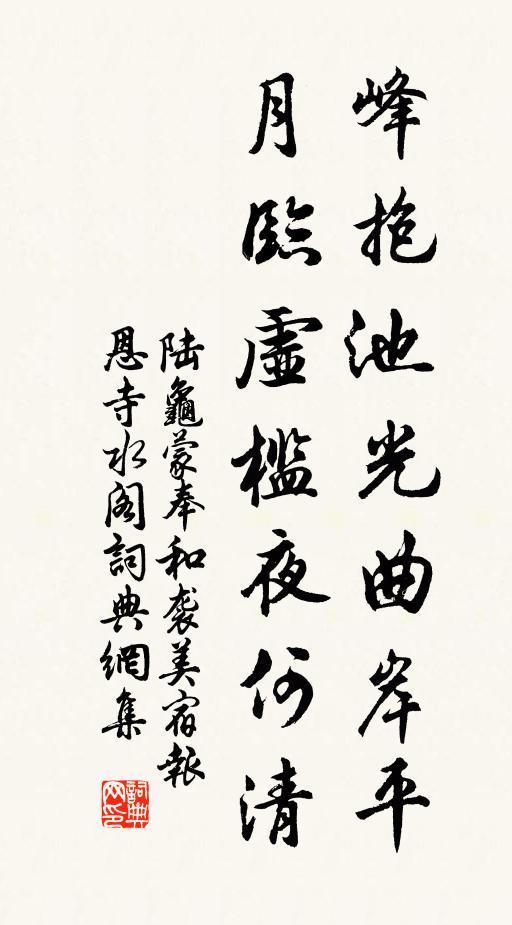 峰抱池光曲岸平
月臨虛檻夜何清
陸龜蒙奉和襲美宿報
恩寺水阁詞典網集
詞典网印